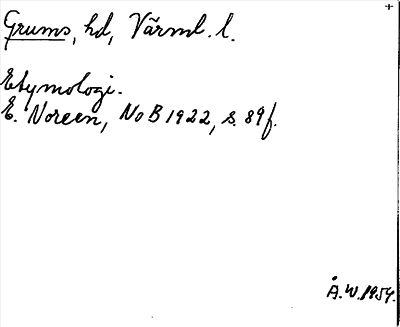 Grums, hd, Värml. l.
Etymologi.
E. Noreen, NoB 1922, s. 89f.
Å.W. 1954.